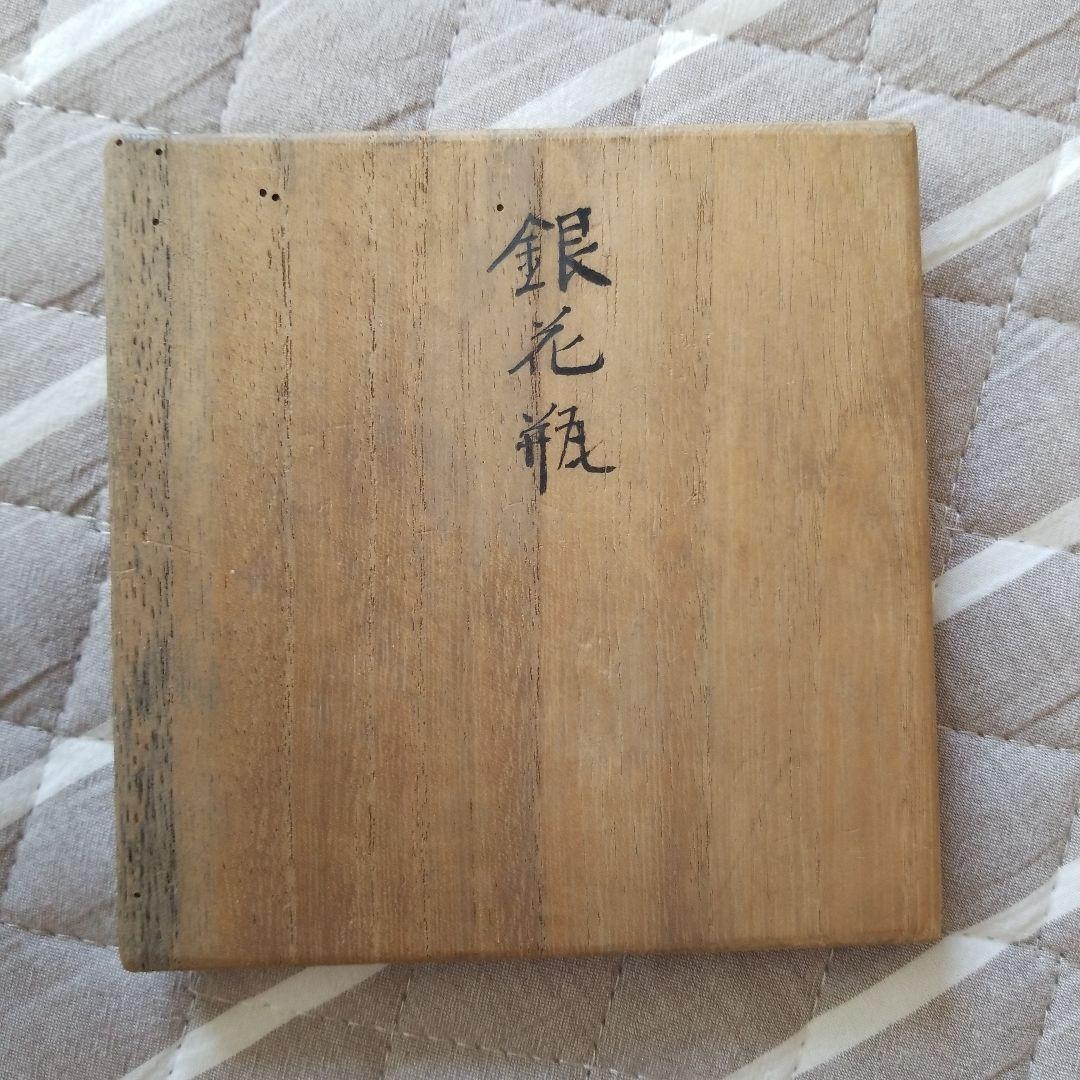 銀花瓶